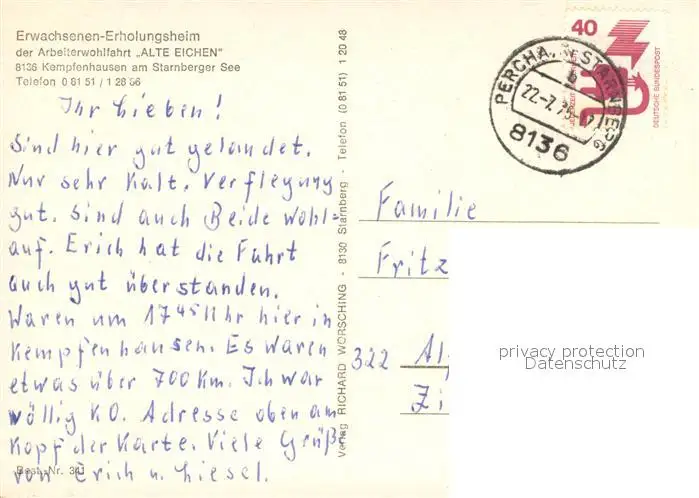 Erwachsenen-Erholungsheim
der Arbeiterwohlfahrt „ALTE EICHEN"
8136 Kempfenhausen am Starnberger See
Telefon 0 81 51 / 1 28 56
Ihr Lieben!
Sind hier gut gelandet.
Nur sehr kalt. Verflegung
gut. Sind auch Beide wohl=
auf. Erich hat die Fahrt
auch gut überstanden.
Waren um 17⁴⁵ Uhr hier in
Kempfenhausen. Es waren
etwas über 700 Km. Ich war
völlig K.O. Adresse oben am
Kopf der Karte. Viele Grüß
von Erich u. Liesel.
Best.-Nr. 341
Verlag RICHARD WÖRSCHING - 8130 Starnberg - Telefon (0 81 51) 1 20 48
40
DEUTSCHE BUNDESPOST
PERCHA, STARNBERG
b
22.-7.
8136
Familie
Fritz
322 Al
Zi
privacy protection
Datenschutz